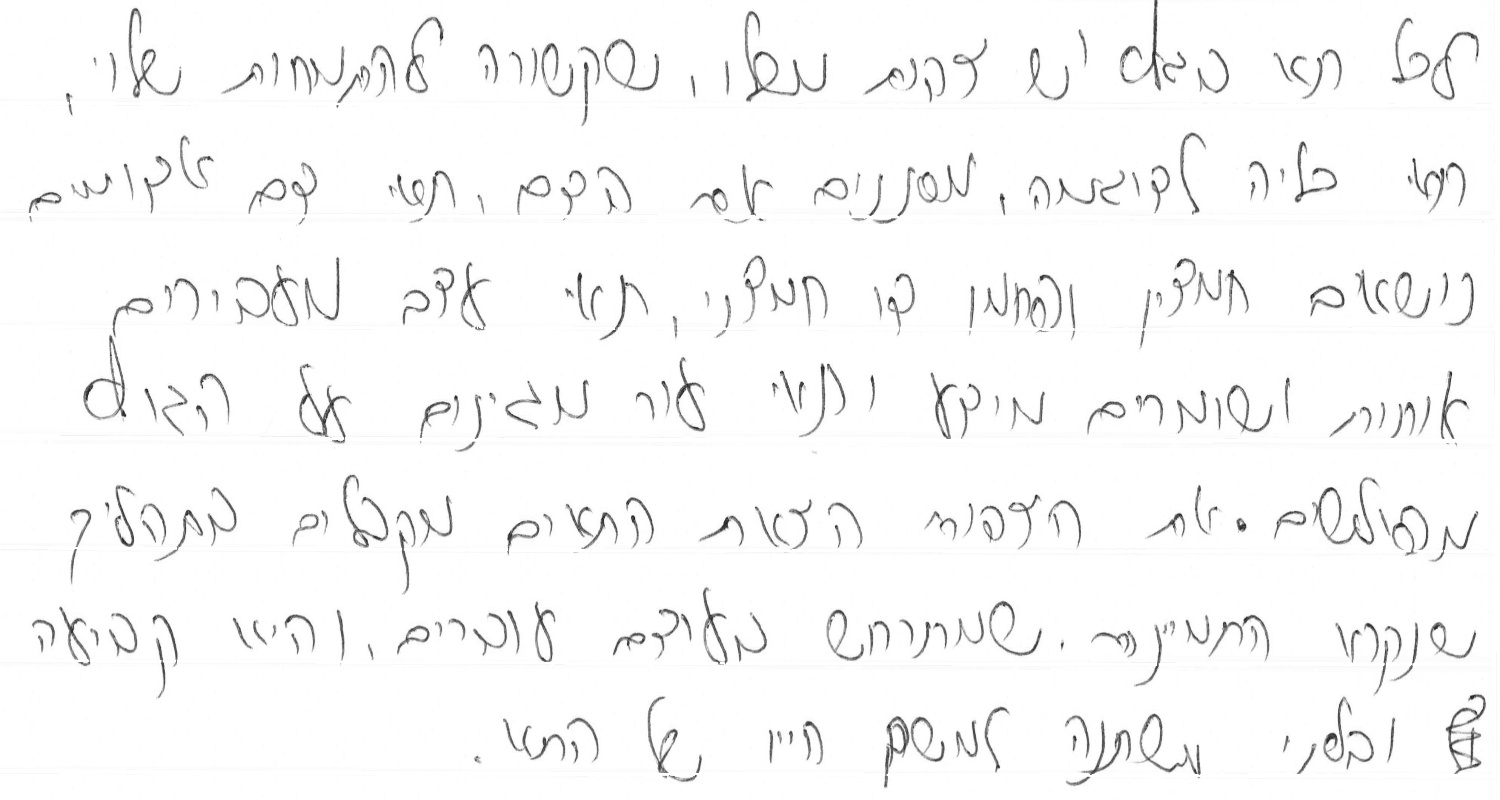 לכל תא בגוף יש זהות משלו, שקשורה להתמחות שלו,
תאי כליה לדוגמה, מסננים את הדם, תאי דם אדומים
נושאים חמצן ופחמן דו חמצני, תאי עצב מעבירים
אותות ושומרים מידע ותאי עור מגינים על הגוף
מפולשים. את הזהות הזאת התאים מקבלים בתהליך
שנקרא התמיינות, שמתרחש בעודם עוברים, והיא קבועה
ובלתי משתנה למשך חייו של התא.